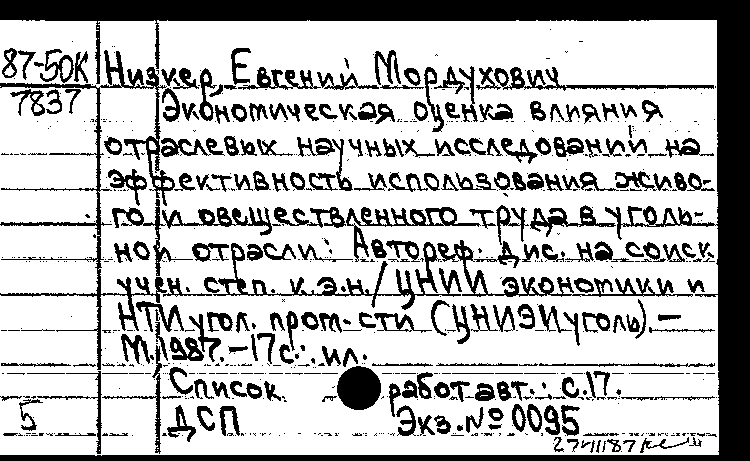 87-50К Низкер, Евгений Мордухович
7837 Экономическая оценка влияния
отраслевых научных исследований на
эффективность использования живо-
го и овеществленного труда в уголь-
ной отрасли: Автореф. дис. на соиск
учен. степ. к.э.н. / ЦНИИ экономики и
НТИ угол. пром-сти (ЦНИЭИуголь). —
М., 1987. - 17 с.: ил.
Список работ авт.: с. 17.
5 ДСП Экз. № 0095